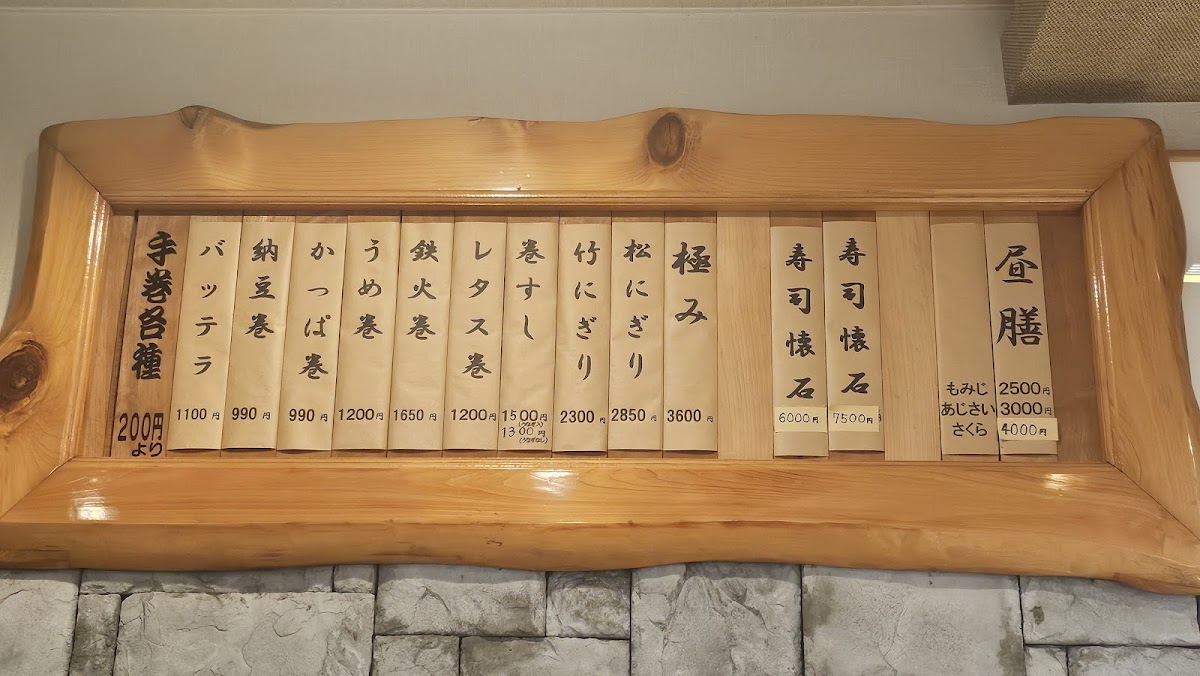 昼膳
もみじ 2500円
あじさい 3000円
さくら 4000円
寿司懐石 7500円
寿司懐石 6000円
極み 3600円
松にぎり 2850円
竹にぎり 2300円
巻すし 1500円
(うなぎ入)
1300円
(うなぎなし)
レタス巻 1200円
鉄火巻 1650円
うめ巻 1200円
かっぱ巻 990円
納豆巻 990円
バッテラ 1100円
手巻各種 200円より